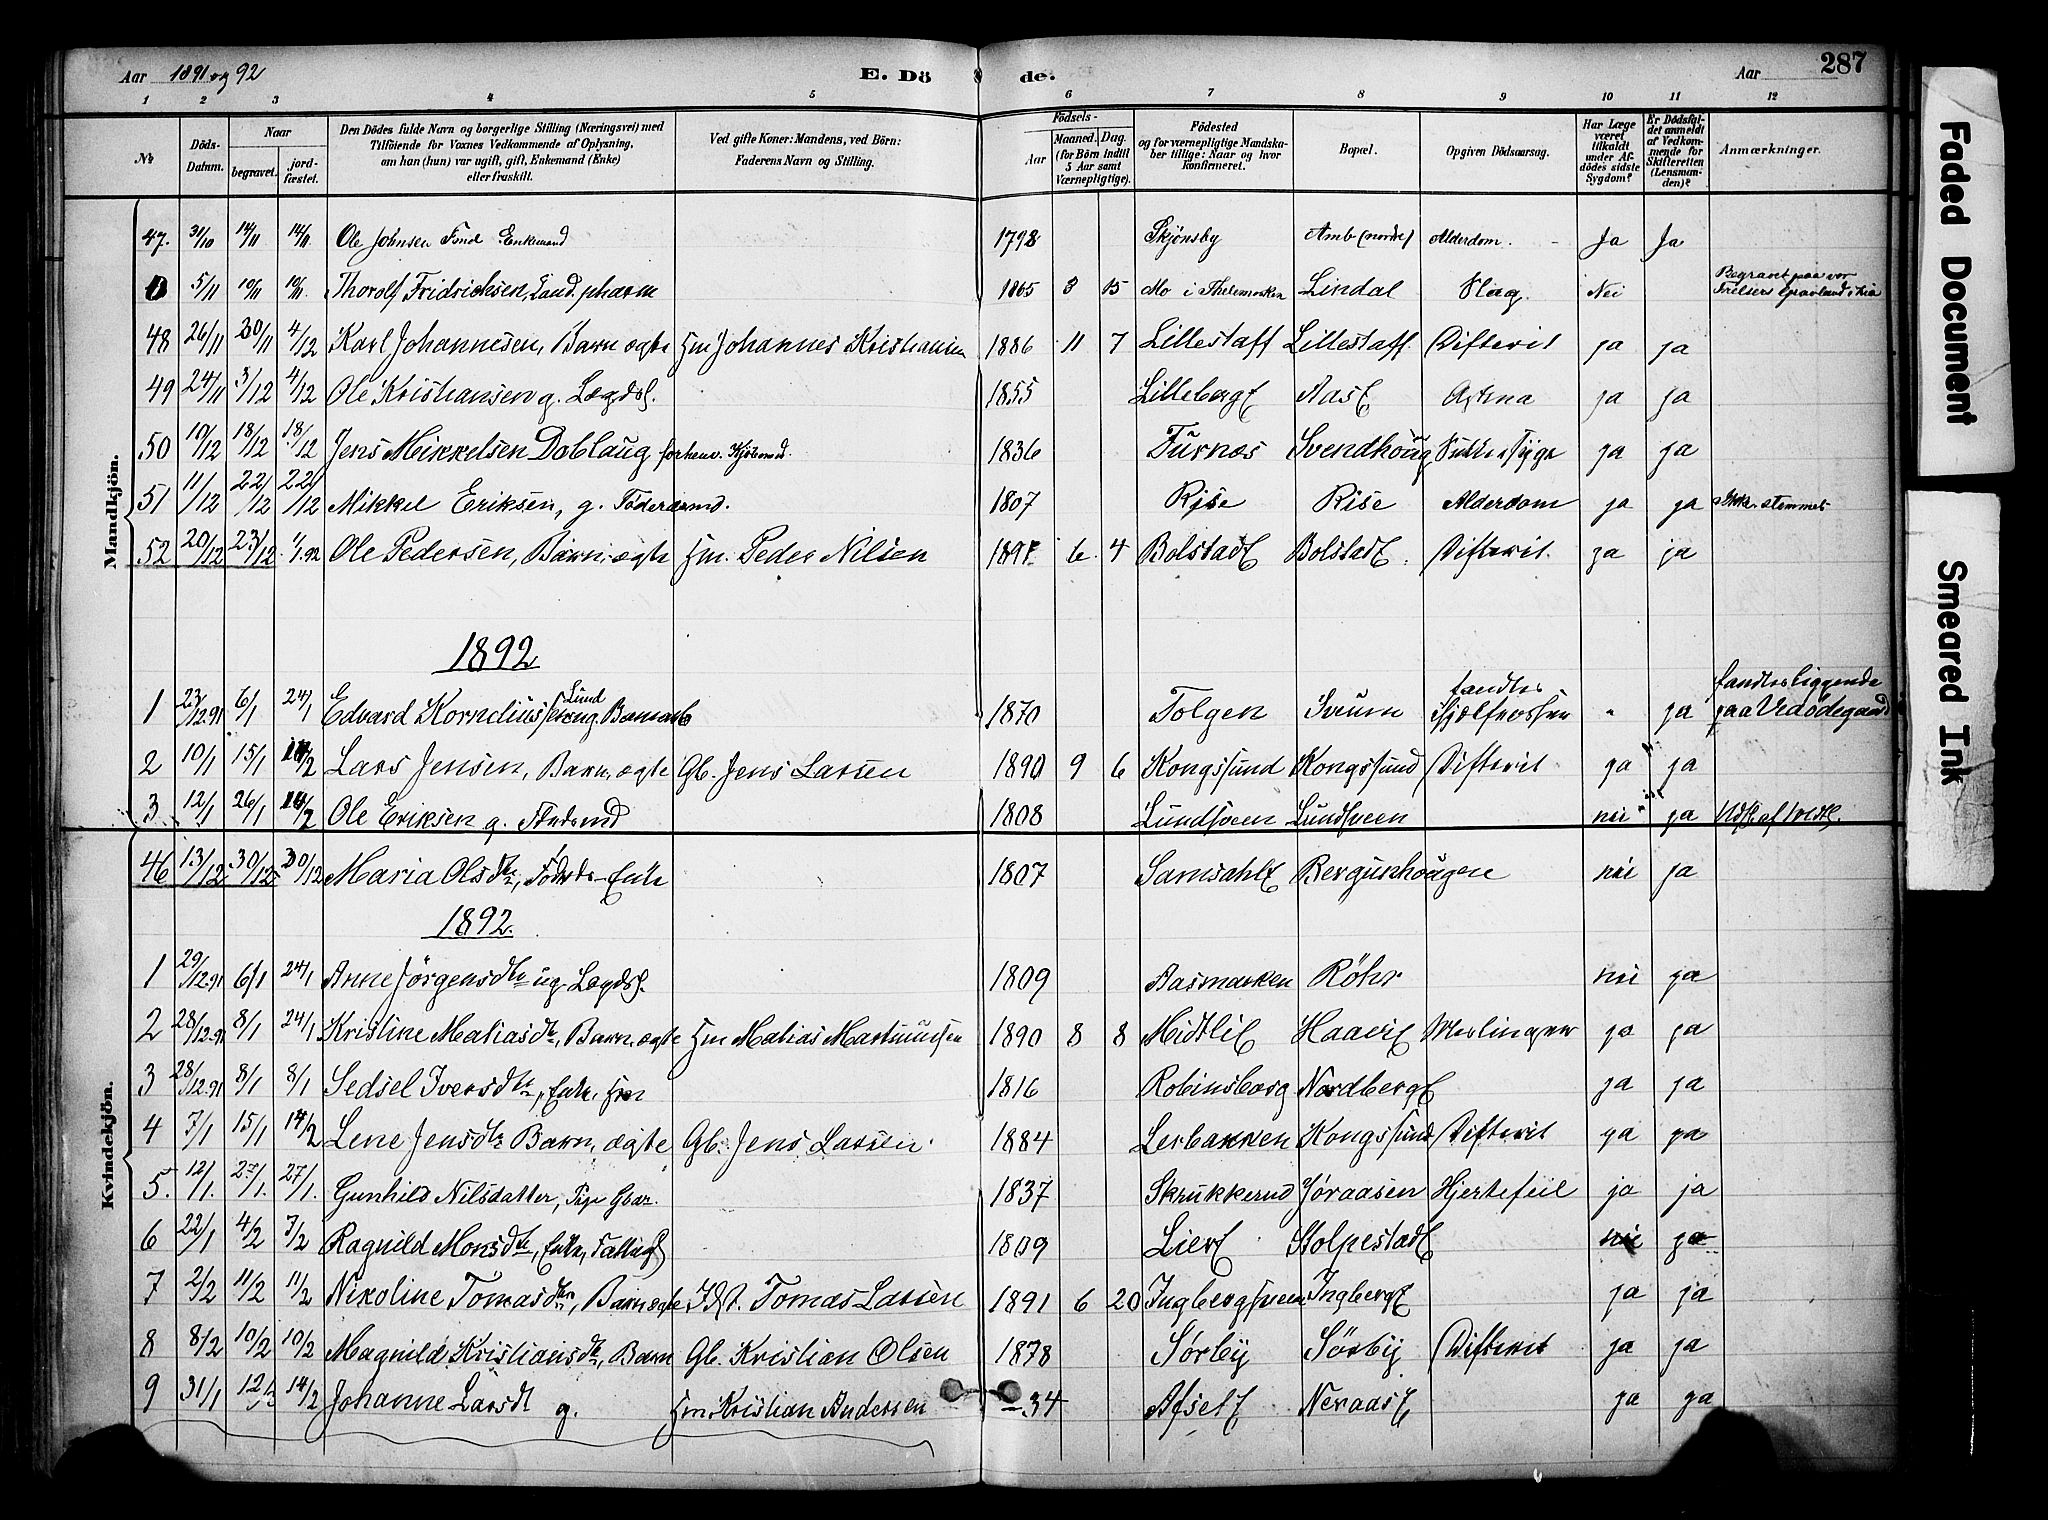 Aar 1891 og 92 E. Dö de. Aar 287
1 2 3 4 5 6 7 8 9 10 11 12
No Döds-Datum. Naar begravet. jordfæstet. Den Dödes fulde Navn og borgerlige Stilling (Næringsvei) med Tilföiende for Voxnes Vedkommende af Oplysning, om han (hun) var ugift, gift, Enkemand (Enke) eller fraskilt. Ved gifte Koner: Mandens, ved Börn: Faderens Navn og Stilling. Födsels- Aar Maaned. Dag. (for Börn indtil 5 Aar samt Værnepligtige). Födested og for værnepligtige Mandskaber tillige: Naar og hvor konfirmeret. Bopæl. Opgiven Dödsaarsag. Har Læge været tilkaldt under Afdödes sidste Sygdom? Er Dödsfaldet anmeldt af Vedkommende for Skifteretten (Lensmanden)? Anmærkninger.
Mandkjön.
47. 31/10 14/11 14/11 Ole Johnsen Enkemand 1798 Skjönsby Amb (nordre) Alderdom. Ja Ja
5/11 10/11 10/11 Thorolf Fridricksen, Cand. pharm 1865 3 15 Mo i Thelemarken Lindal Slag. Nei Begravet paa vor Frelsers Gravlund i Kria
48 26/11 30/11 4/12 Karl Johannesen, Barn ægte Hm Johannes Kristiansen 1886 11 7 Lillestaff Lillestaff. Difterit ja ja
49 24/11 3/12 4/12 Ole Kristiansen g. Lægdsl. 1855 LillebergE AasE, ja ja
50 10/12 18/12 18/12 Jens Mikkelsen Doblaug forhenv. Kjöbmd. 1836 Furnæs Svendhöug Sukkersyge ja ja
51 11/12 22/12 22/12 Mikkel Eriksen, g. Föderaamd. 1807 Rise Rise Alderdom ja ja stemmet
52 20/12 23/12 1/1.92 Ole Pedersen, Barn, ægte Hm. Peder Nilsen 1891 6 4 BolstadE BolstadE. Difterit. ja ja
1892
1 23/12.91 6/1 24/1 Edvard Kornelius Lund ug. 1870 Tolgen Sveum fandtes Ihjelfrossen " ja fandtes liggende paa Vedödegaard
2 10/1 15/1 14/2 Lars Jensen, Barn, ægte Gb. Jens Larsen 1890 9 6 Kongssund Kongssund Difterit ja ja
3 12/1 26/1 14/2 Ole Eriksen g. 1808 Lundsveen Lundsveen nei ja
Kvindekjön.
46 13/12 30/12 30/12 Maria Olsdtr, Föderds-Enke 1807 SamsahlE Bergunhöugen nei ja
1892.
1 29/12.91 6/1 24/1 Anne Jörgensdtr ug. Lægdsl. 1809 Aasmarken Röhr nei ja
2 28/12.91 8/1 24/1 Kristine Matiasdtr, Barn, ægte Hm Matias Martinussen 1890 8 8 MidtliE HaaverE Meslinger ja ja
3 28/12.91 8/1 8/1 Sedsel Iversdtr, Enke, Hm 1816 Robinsborg NordbergE ja ja
4 7/1 15/1 14/2 Lene Jensdtr Barn, ægte Gb. Jens Larsen 1884 Lerbakken Kongssund Difterit ja ja
5. 12/1. 27/1. 27/1. Gunhild Nilsdatter, Pige Gbar. 1837 Skrukkerud Jøraasen Hjertefeil ja ja
6 22/1 4/2 7/2 Ragnild Monsdtr, Enke, Fattigl. 1809 LierE StolpestadE nei ja
7 2/2 11/2 11/2 Nikoline Tomasdtr, Barn ægte Tomas Larsen 1891 6 20 Ingbergsveen IngbergE ja ja
8 8/2 10/2 10/2 Magnild Kristiansdtr, Barn Gb. Kristian Olsen 1878 Sørby Sörby Difterit ja ja
9 31/1 12/2 14/2 Johanne Larsdt g. Hm. Kristian Andersen –34 AfsetE NeraasE ja ja
Faded Document
Smeared Ink